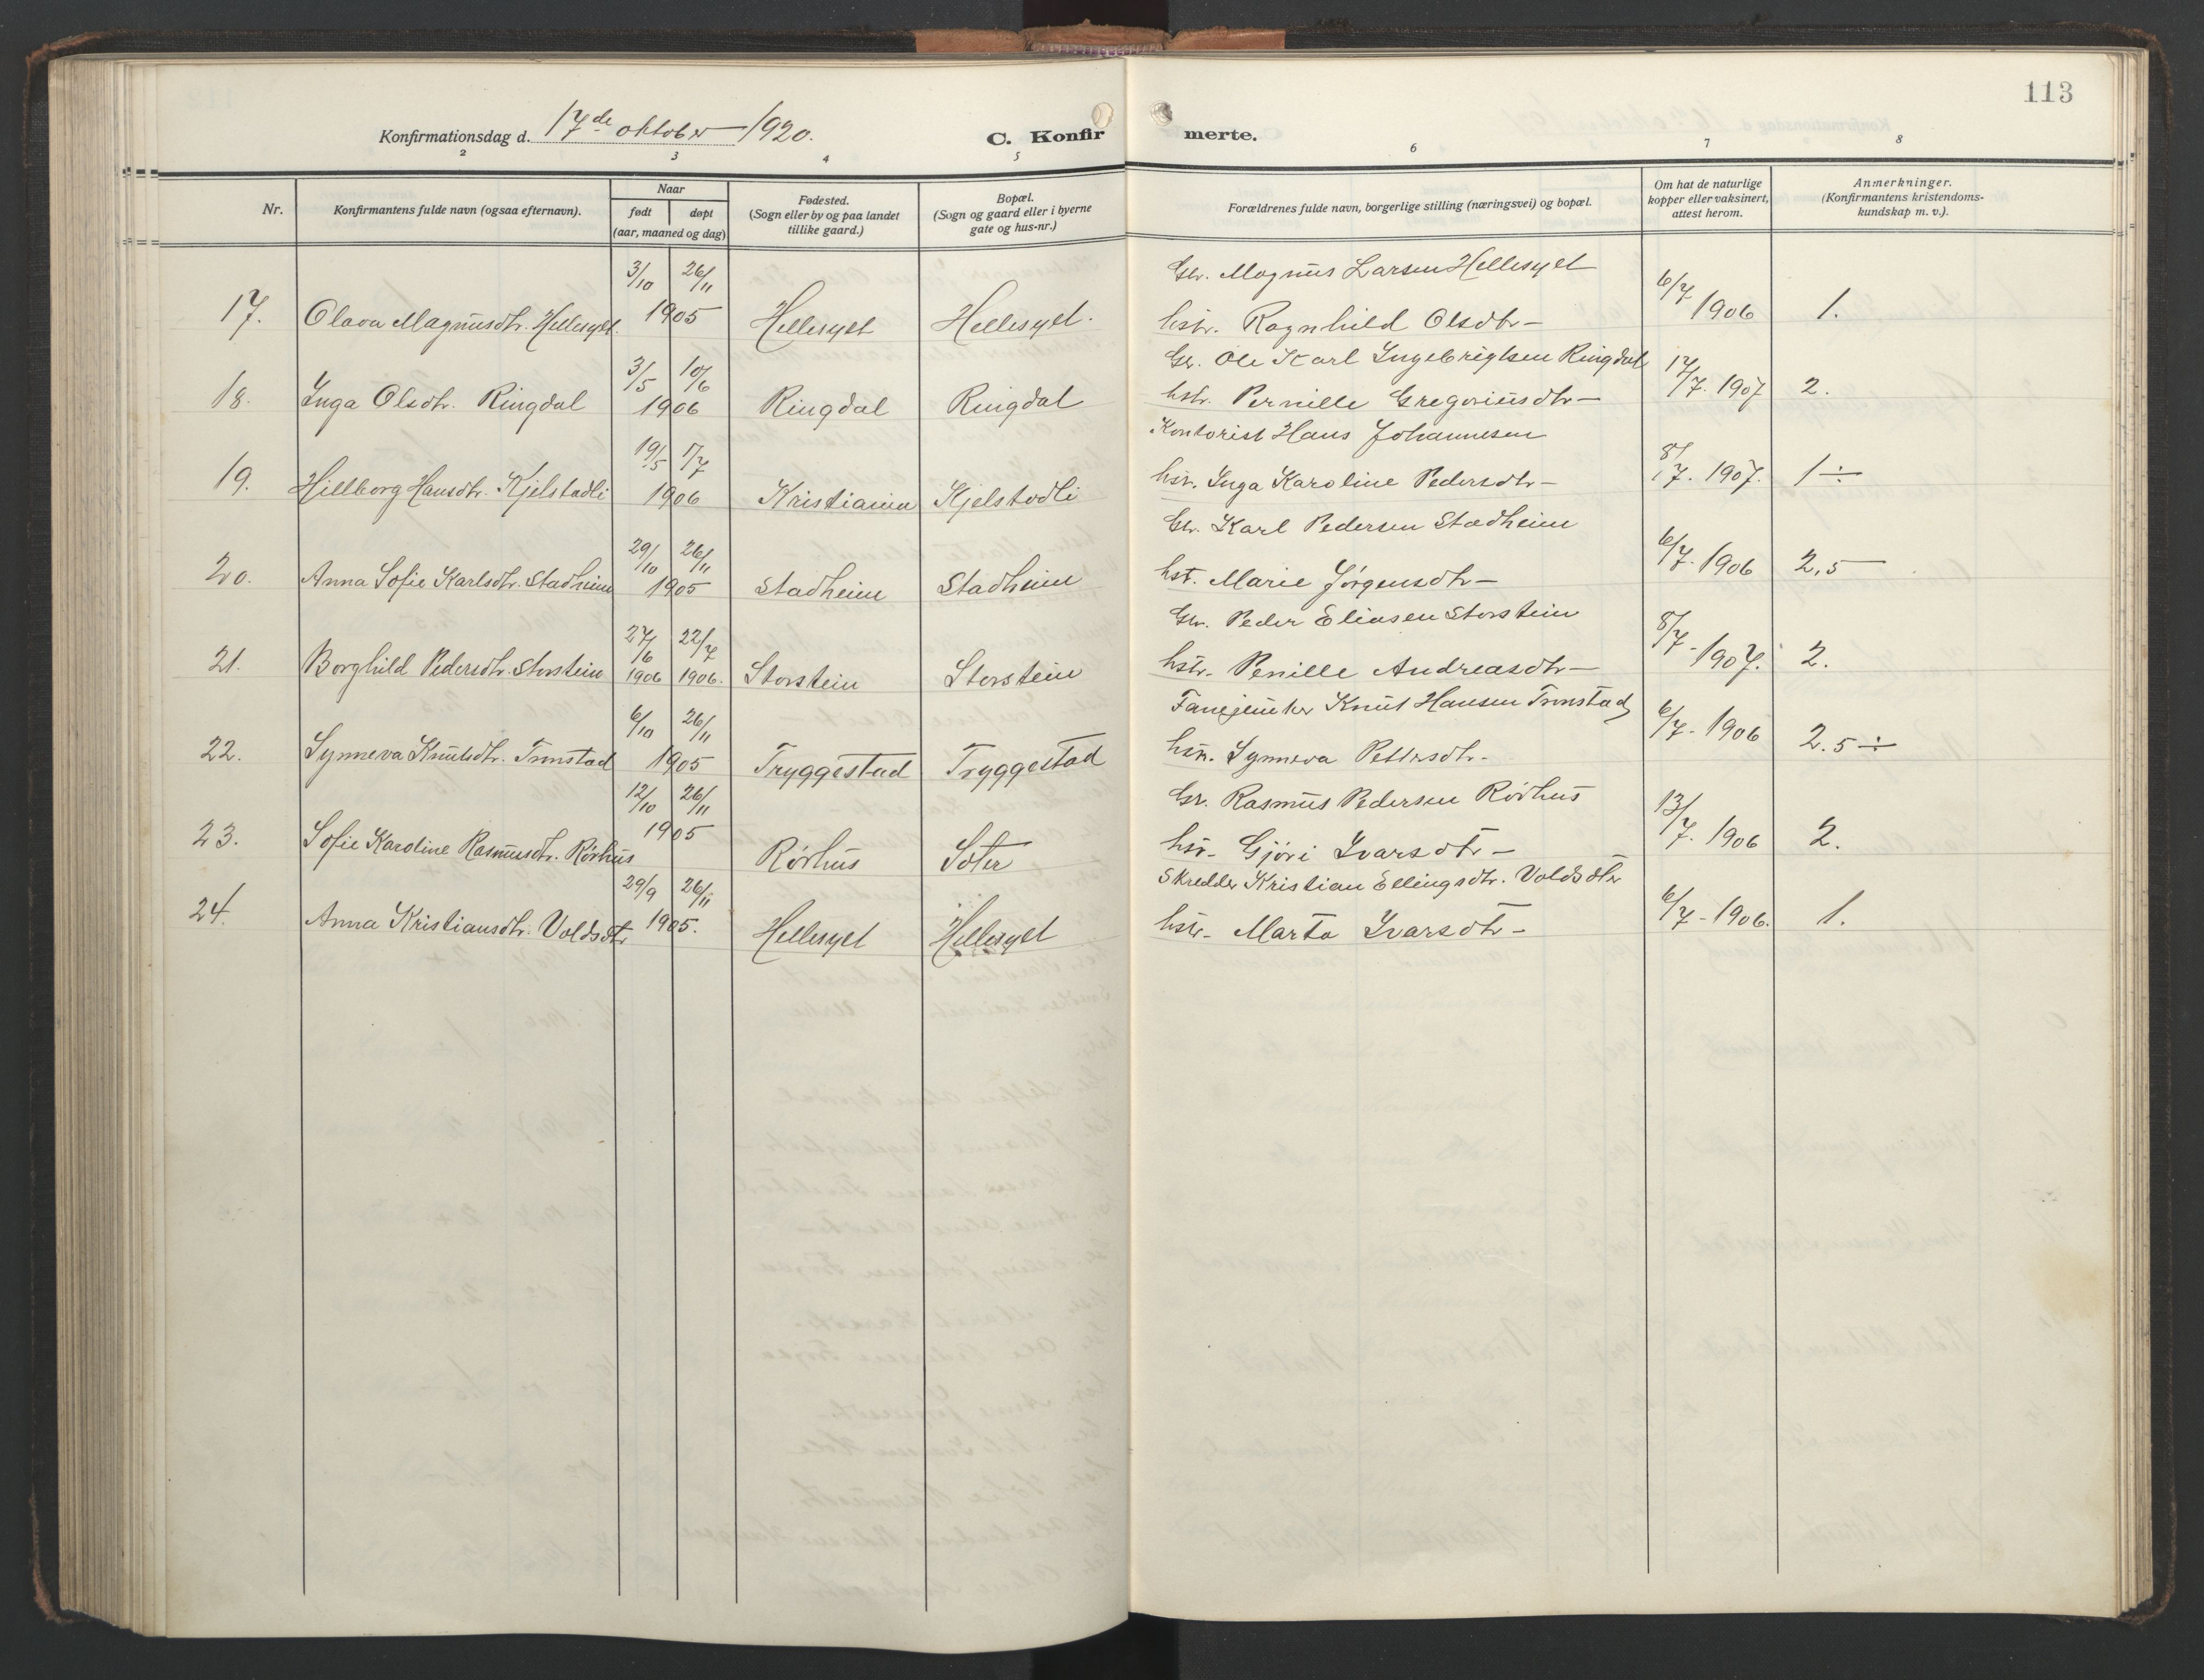 113
Konfirmationsdag d. 17de oktober 1920.
C. Konfir merte.
2 3 4 5 6 7 8
Nr.
Konfirmantens fulde navn (ogsaa efternavn).
Naar
født døpt
(aar, maaned og dag)
Fødested.
(Sogn eller by og paa landet
tillike gaard.)
Bopæl.
(Sogn og gaard eller i byerne
gate og hus-nr.)
Forældrenes fulde navn, borgerlige stilling (næringsvei) og bopæl.
Om hat de naturlige
kopper eller vaksinert,
attest herom.
Anmerkninger.
(Konfirmantens kristendoms-
kundskap m. v.).
3/10 26/11 Gbr. Magnus Larsen Hellesylt
17. Olava Magnusdtr. Hellesylt. 1905 Hellesylt Hellesylt. hstr. Ragnhild Olsdtr – 6/7 1906 1.
3/5 10/6 Gbr. Ole Karl Ingebrigtsen Ringdal
18. Inga Olsdtr. Ringdal 1906 Ringdal Ringdal hstr. Pernille Gregoriusdtr – 17/7. 1907 2.
19/5 1/7 Kontorist Hans Johannesen
19. Hillborg Hansdtr. Kjelstadli 1906 Kristiania Kjelstadli hstr. Inga Karoline Pedersdtr – 8/7. 1907. 1 ÷
29/10 26/11 Gbr. Karl Pedersen Stadheim
20. Anna Sofie Karlsdtr. Stadheim 1905 Stadheim Stadheim hst. Marie Jørgensdtr – 6/7. 1906 2,5 –
27/6 22/7 Gbr. Peder Eliasen Storstein
21. Borghild Pedersdtr. Storstein 1906 1906. Storstein Storstein hstr. Penille Andreasdtr – 8/7 - 1907. 2.
6/10 26/11 Fanejunker Knut Hansen Tronstad
22. Synneva Knutsdtr. Tronstad 1905 Tryggestad Tryggestad hstr. Synneva Pettersdtr. 6/7 - 1906 2.5 ÷
12/10 26/11 Gbr. Rasmus Pedersen Rørhus
23. Sofie Karoline Rasmusdtr. Rørhus 1905 Rørhus Soter hstr. Gjøri Ivarsdtr – 13/7. 1906 2.
29/9 26/11 Skredder Kristian Ellingsdtr. Voldsdtr
24. Anna Kristiansdtr. Voldsdtr 1905. Hellesylt Hellesylt hstr. Marta Ivarsdtr – 6/7 - 1906. 1.